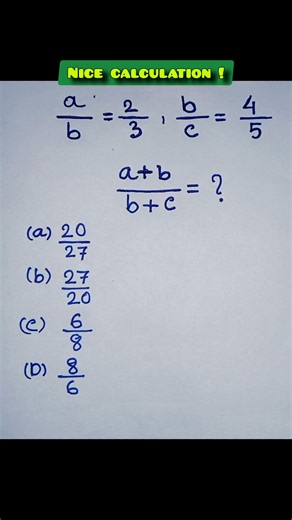 NICE CALCULATION !
a/b = 2/3 , b/c = 4/5
a+b/b+c = ?
(a) 20/27
(b) 27/20
(c) 6/8
(D) 8/6